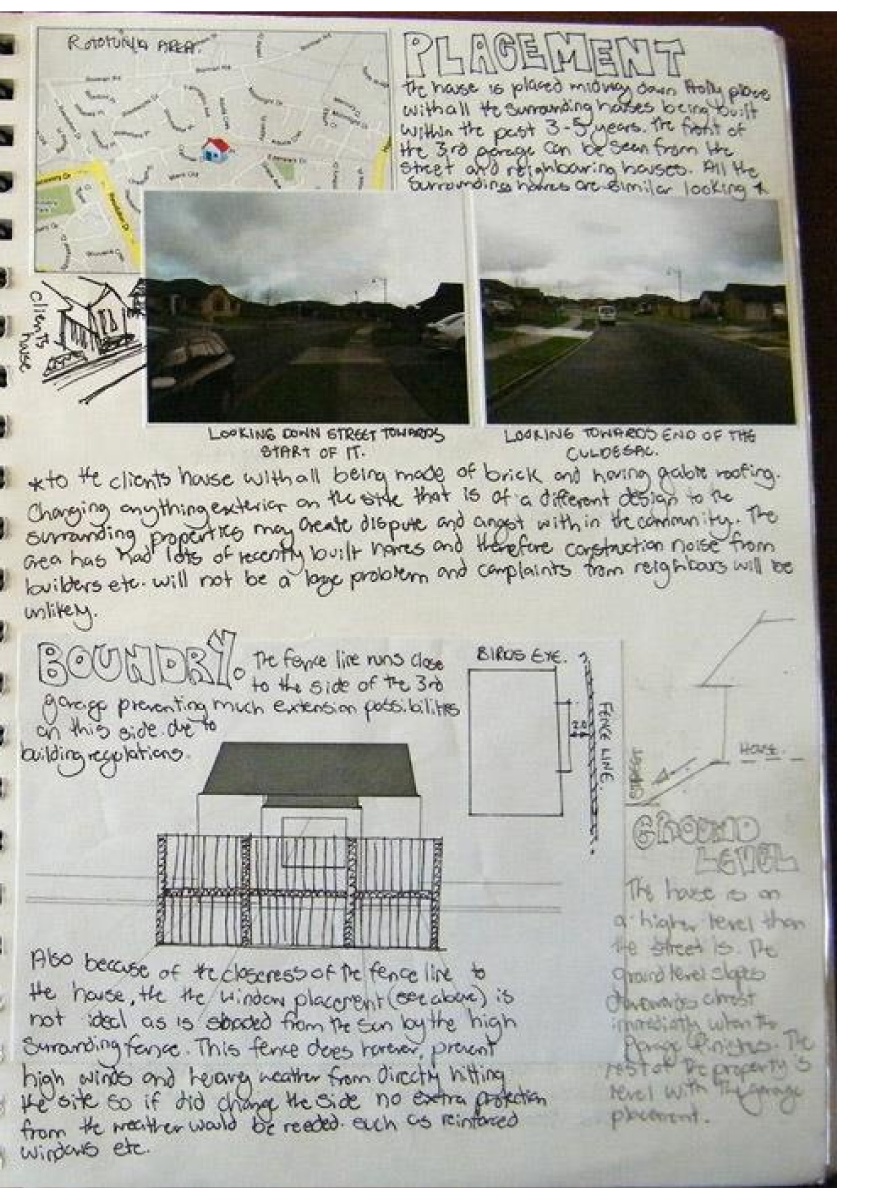 ROTOTUNA AREA.
PLACEMENT
The house is placed midway down Holly place
with all the surrounding houses being built
within the past 3-5 years. The front of
the 3rd garage can be seen from the
street and neighbouring houses. All the
surrounding homes are similar looking *
clients
house
LOOKING DOWN STREET TOWARDS
START OF IT.
LOOKING TOWARDS END OF THE
CULDESAC.
*to the clients house with all being made of brick and having gable roofing.
Changing anything exterior on the site that is of a different design to the
surrounding properties may create dispute and angst within the community. The
area has had lots of recently built homes and therefore construction noise from
builders etc. will not be a large problem and complaints from neighbours will be
unlikely.
BOUNDRY.
The fence line runs close
to the side of the 3rd
garage preventing much extension possibilities
on this side due to
building regulations.
BIRDS EYE.
2.0
FENCE LINE.
HOUSE.
STREET
GROUND
LEVEL
The house is on
a higher level than
the street is. The
ground level slopes
downwards almost
immediatly when the
garage finishes. The
rest of the property is
level with the garage
placement.
Also because of the closeness of the fence line to
the house, the the window placement (see above) is
not ideal as is shaded from the sun by the high
surrounding fence. This fence does however, prevent
high winds and heavy weather from directly hitting
the site so if did change the side no extra protection
from the weather would be needed. such as reinforced
windows etc.